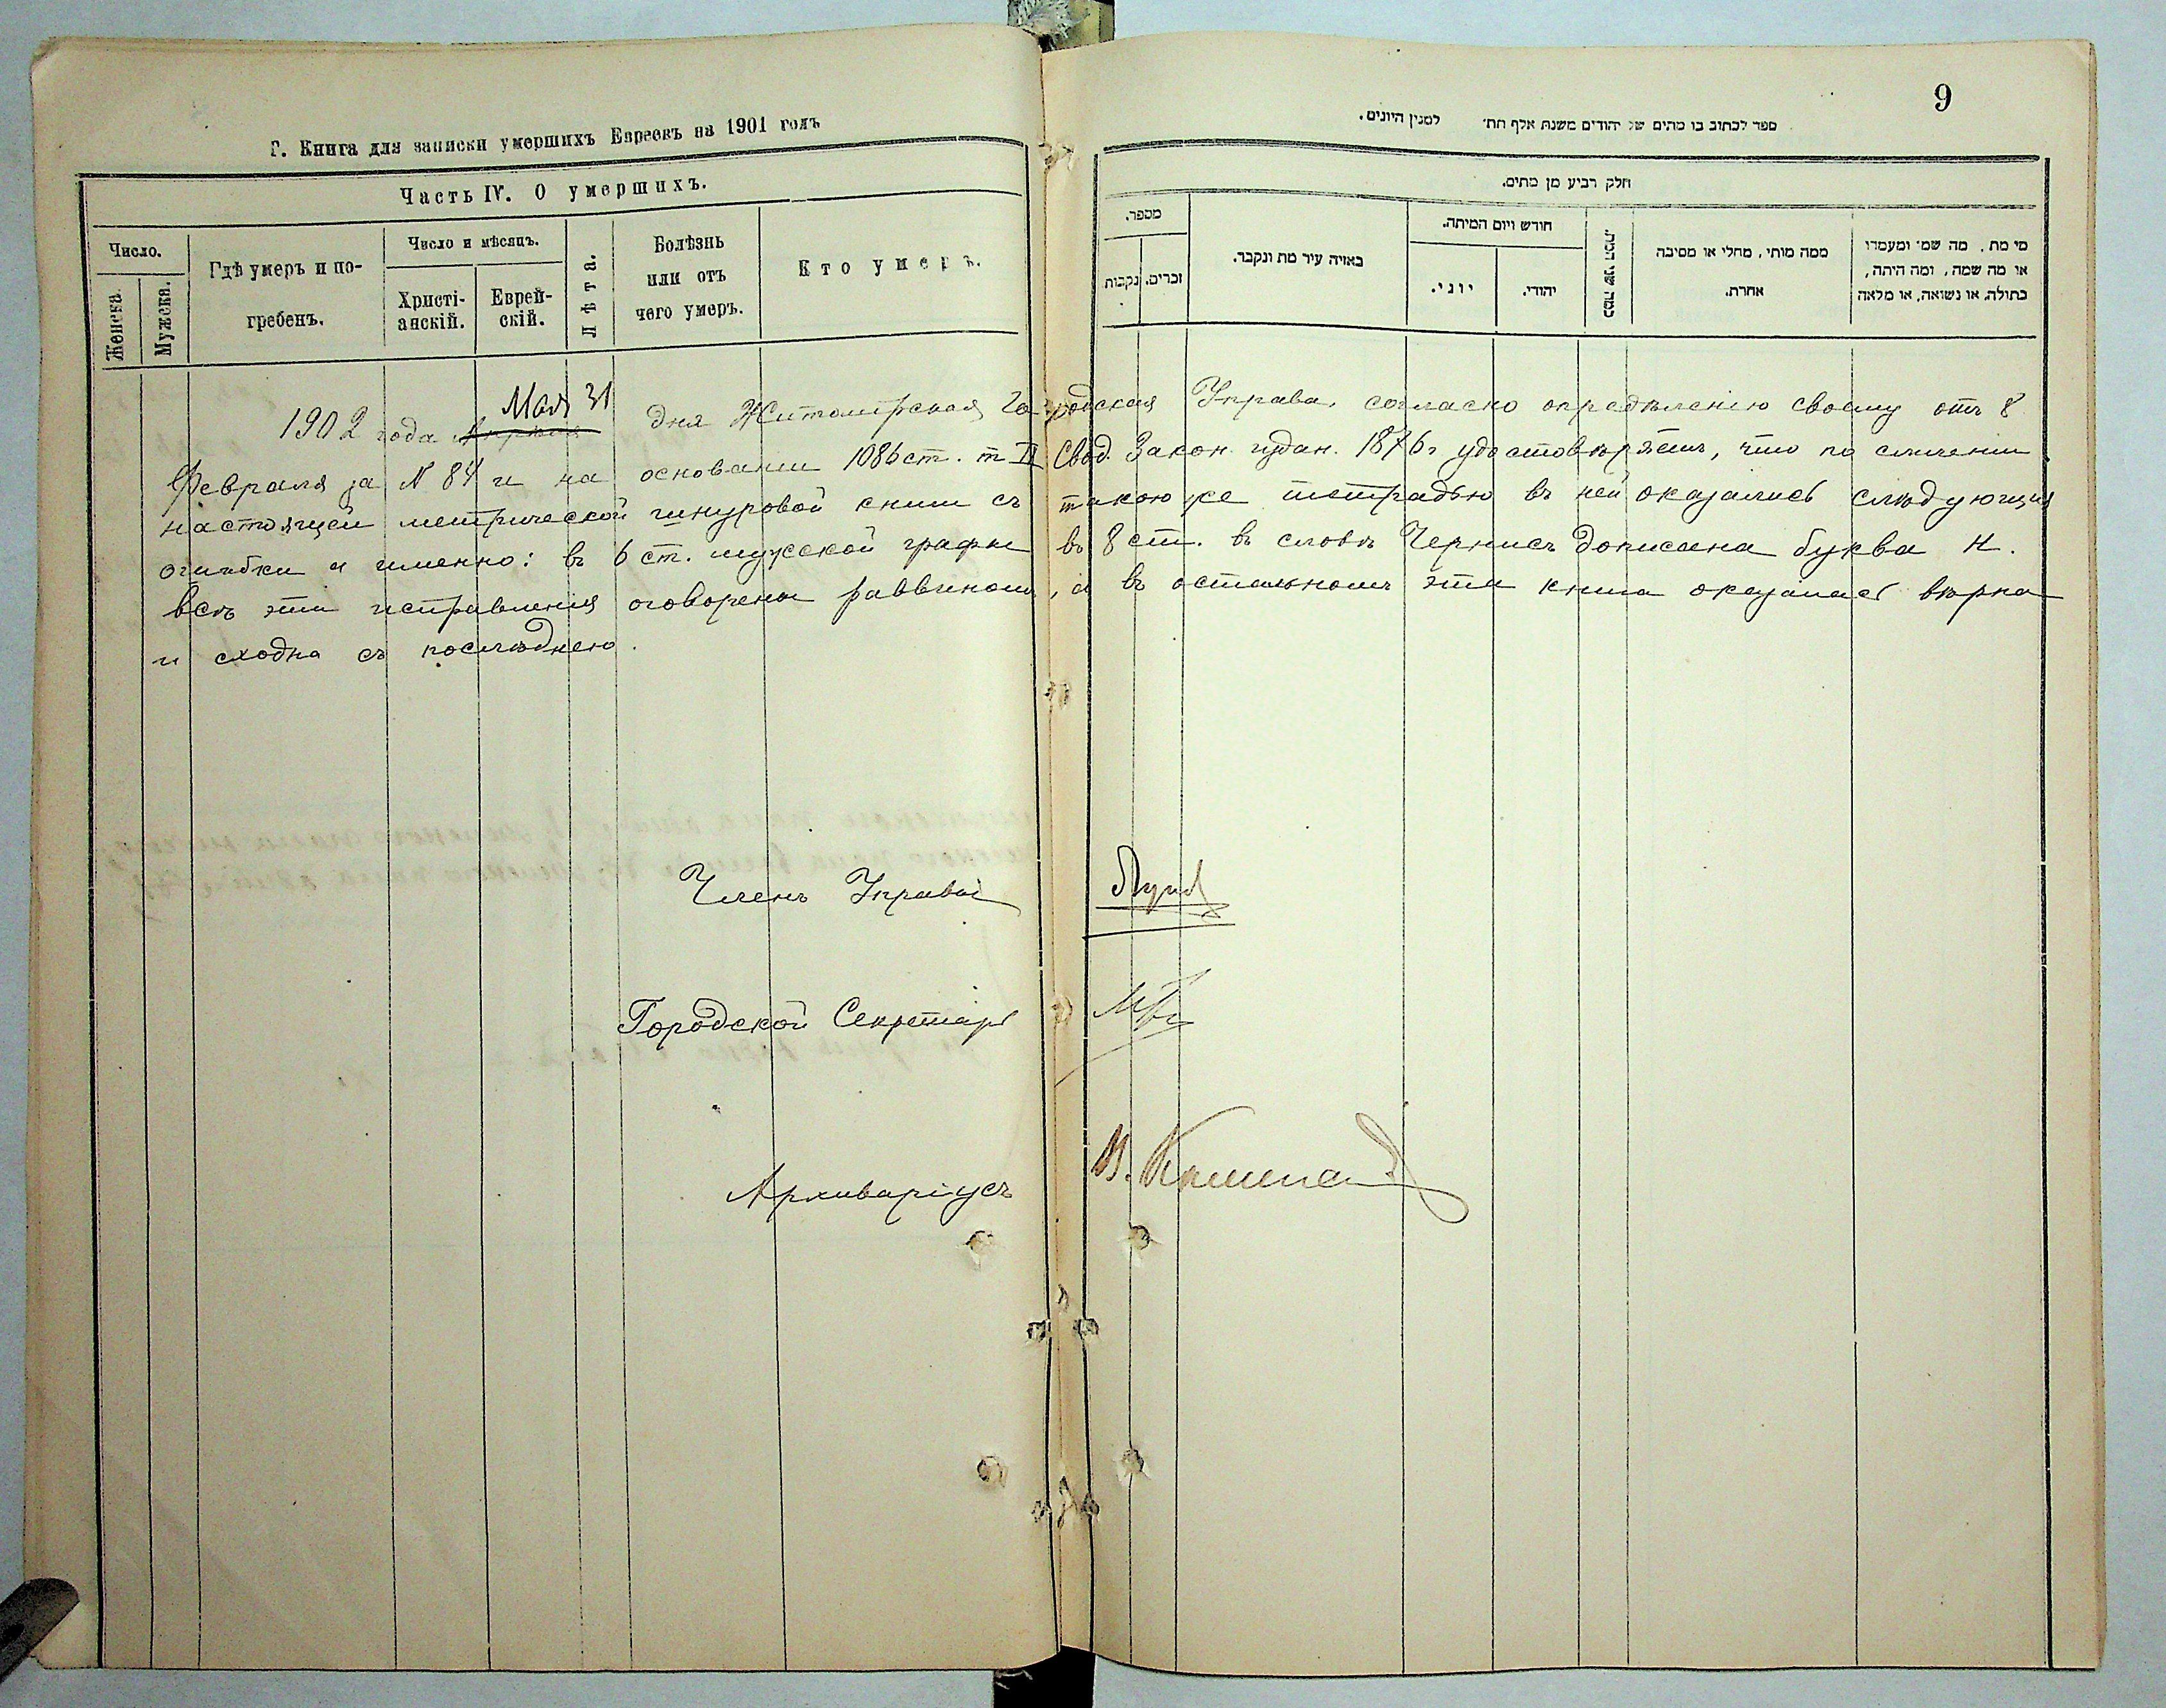 Г. Книга для записки умершихъ Евреевъ на 1901 годъ
Часть IV. О умершихъ.
Число.
Женска.
Мужска.
Гдѣ умеръ и по-
гребенъ.
Число и мѣсяцъ.
Христі-
анскій.
Еврей-
скій.
Лѣта.
Болѣзнь
или отъ
чего умеръ.
Кто умеръ.
9
ספר לכתוב בו מתים של יהודים משנת אלף תת׳ למנין היונים.
חלק רביע מן מתים.
מספר.
נקבות
זכרים.
באיזה עיר מת ונקבר.
חודש ויום המיתה.
יוני.
יהודי.
כמה שני המת.
ממה מותי, מחלי או מסיבה
אחרת.
מי מת, מה שמו ומעמדו
או מה שמה, ומה היתה,
בתולה, או נשואה, או מלאה
1902 года Апрѣля Мая 31 дня Житомірская Городская Управа, согласно опредѣленію своему отъ 8
Февраля за № 84 и на основаніи 1086 ст. т. IX Свод. Закон. издан. 1876 г удостовѣряетъ, что по сличеніи
настоящей метрической шнуровой книги съ такою же тетрадью въ ней оказались слѣдующія
ошибки а именно: въ 6 ст. мужской графы въ 8 ст. въ словѣ Чернисъ дописана буква н.
всѣ эти исправленія оговорены раввиномъ, а въ остальномъ эта книга оказалась вѣрна
и сходна съ послѣднею.
Членъ Управы
Городской Секретарь
Архиваріусъ